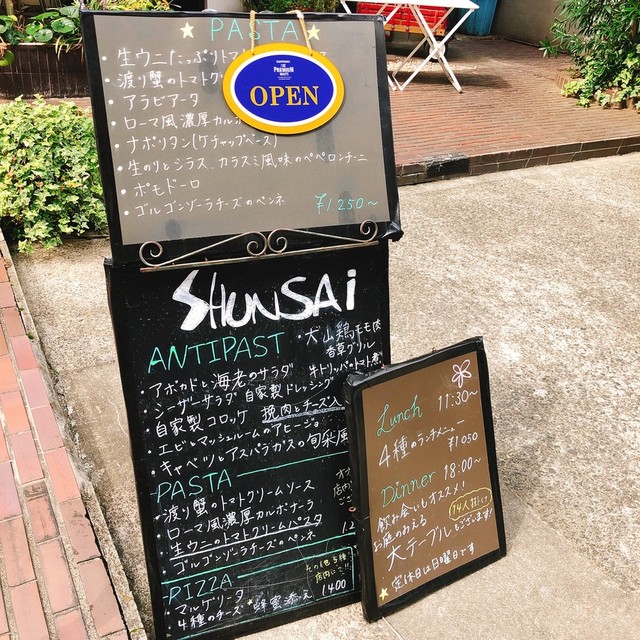 ★PASTA★
・生ウニたっぷりトマトクリ
・渡り蟹のトマトクリ
・アラビアータ
・ローマ風濃厚カルボ
・ナポリタン(ケチャップベース)
・生のりとシラス、カラスミ風味のペペロンチーニ
・ポモドーロ
・ゴルゴンゾーラチーズのペンネ
¥1250〜
THE PREMIUM MALT'S
OPEN
SHUNSAi
ANTIPAST
・大山鶏モモ肉
香草グリル
・アボカドと海老のサラダ
牛トリッパのトマト煮
・シーザーサラダ 自家製ドレッシング
自家製コロッケ 挽肉とチーズ入
・エビとマッシュルームのアヒージョ
・キャベツとアスパラガスの旬菜風
PASTA
・渡り蟹のトマトクリームソース
・ローマ風濃厚カルボナーラ
・生ウニのトマトクリームパスタ
ゴルゴンゾーラチーズのペンネ
PIZZA
マルゲリータ
4種のチーズ★蜂蜜添え
その他5種
店内に!!
1400
Lunch 11:30〜
4種のランチメニュー
¥1050
Dinner 18:00〜
飲み会もオススメ!
お庭の内える
14人掛け
大テーブルもございます!
★定休日は日曜日です